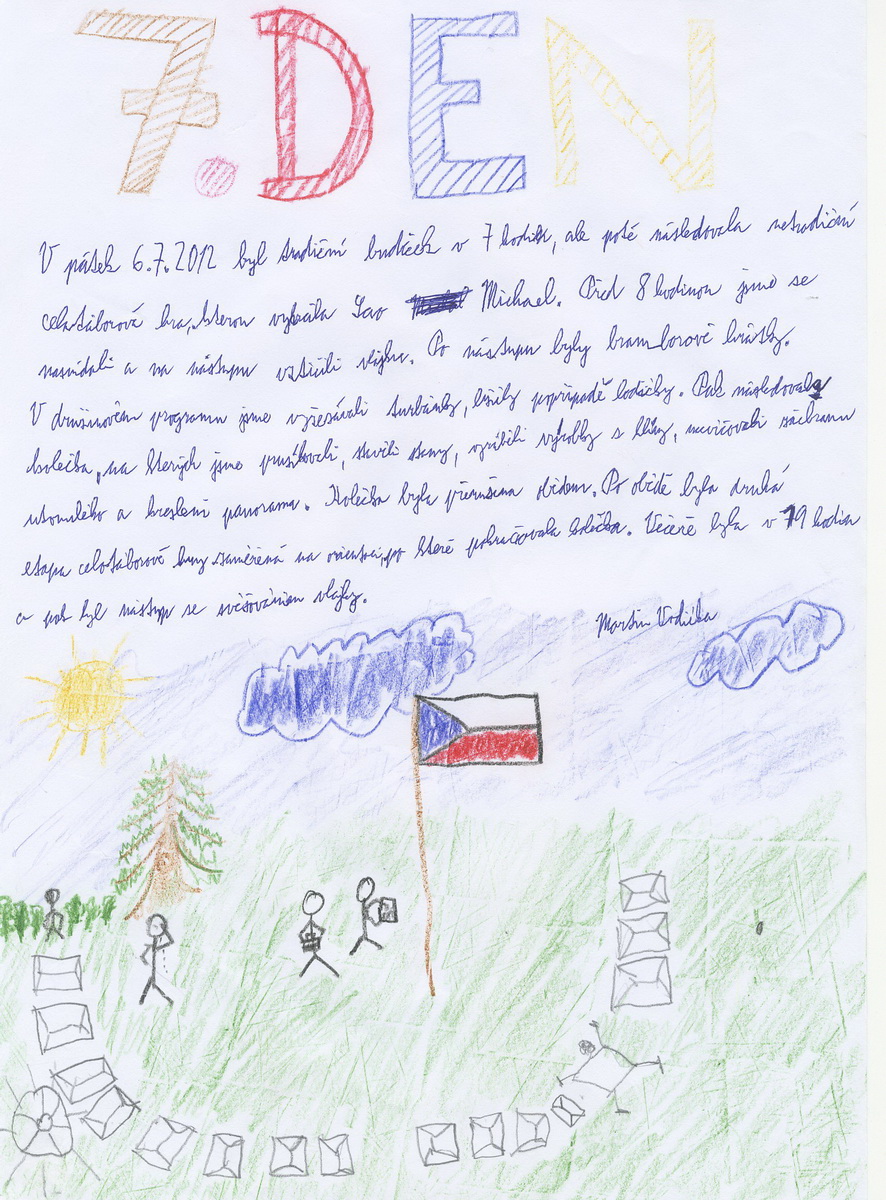 7. DEN
V pátek 6.7.2012 byl tradiční budíček v 7 hodin, ale poté následovala netradiční
celotáborová hra, kterou vyhrála Michael. Před 8 hodinou jsme se
nasnídali a na nástupu vztičili vlajku. Po nástupu byly bramborové hrátky.
V družinovém programu jsme vyřesávali turbánky, lžičky popřípadě lodičky. Pak následovala
kolečka, na kterých jsme prusíkovali, stavili stany, vyráběli výrobky s hlíny, nacvičovali záchranu
utonulého a kreslení panorama. Kolečka byla přerušena obědem. Po obědě byla druhá
etapa celotáborové hry zaměřená na orientaci, po které pokračovala kolečka. Večeře byla v 19 hodin
a pak byl nástup se svěšováním vlajky.
Martin